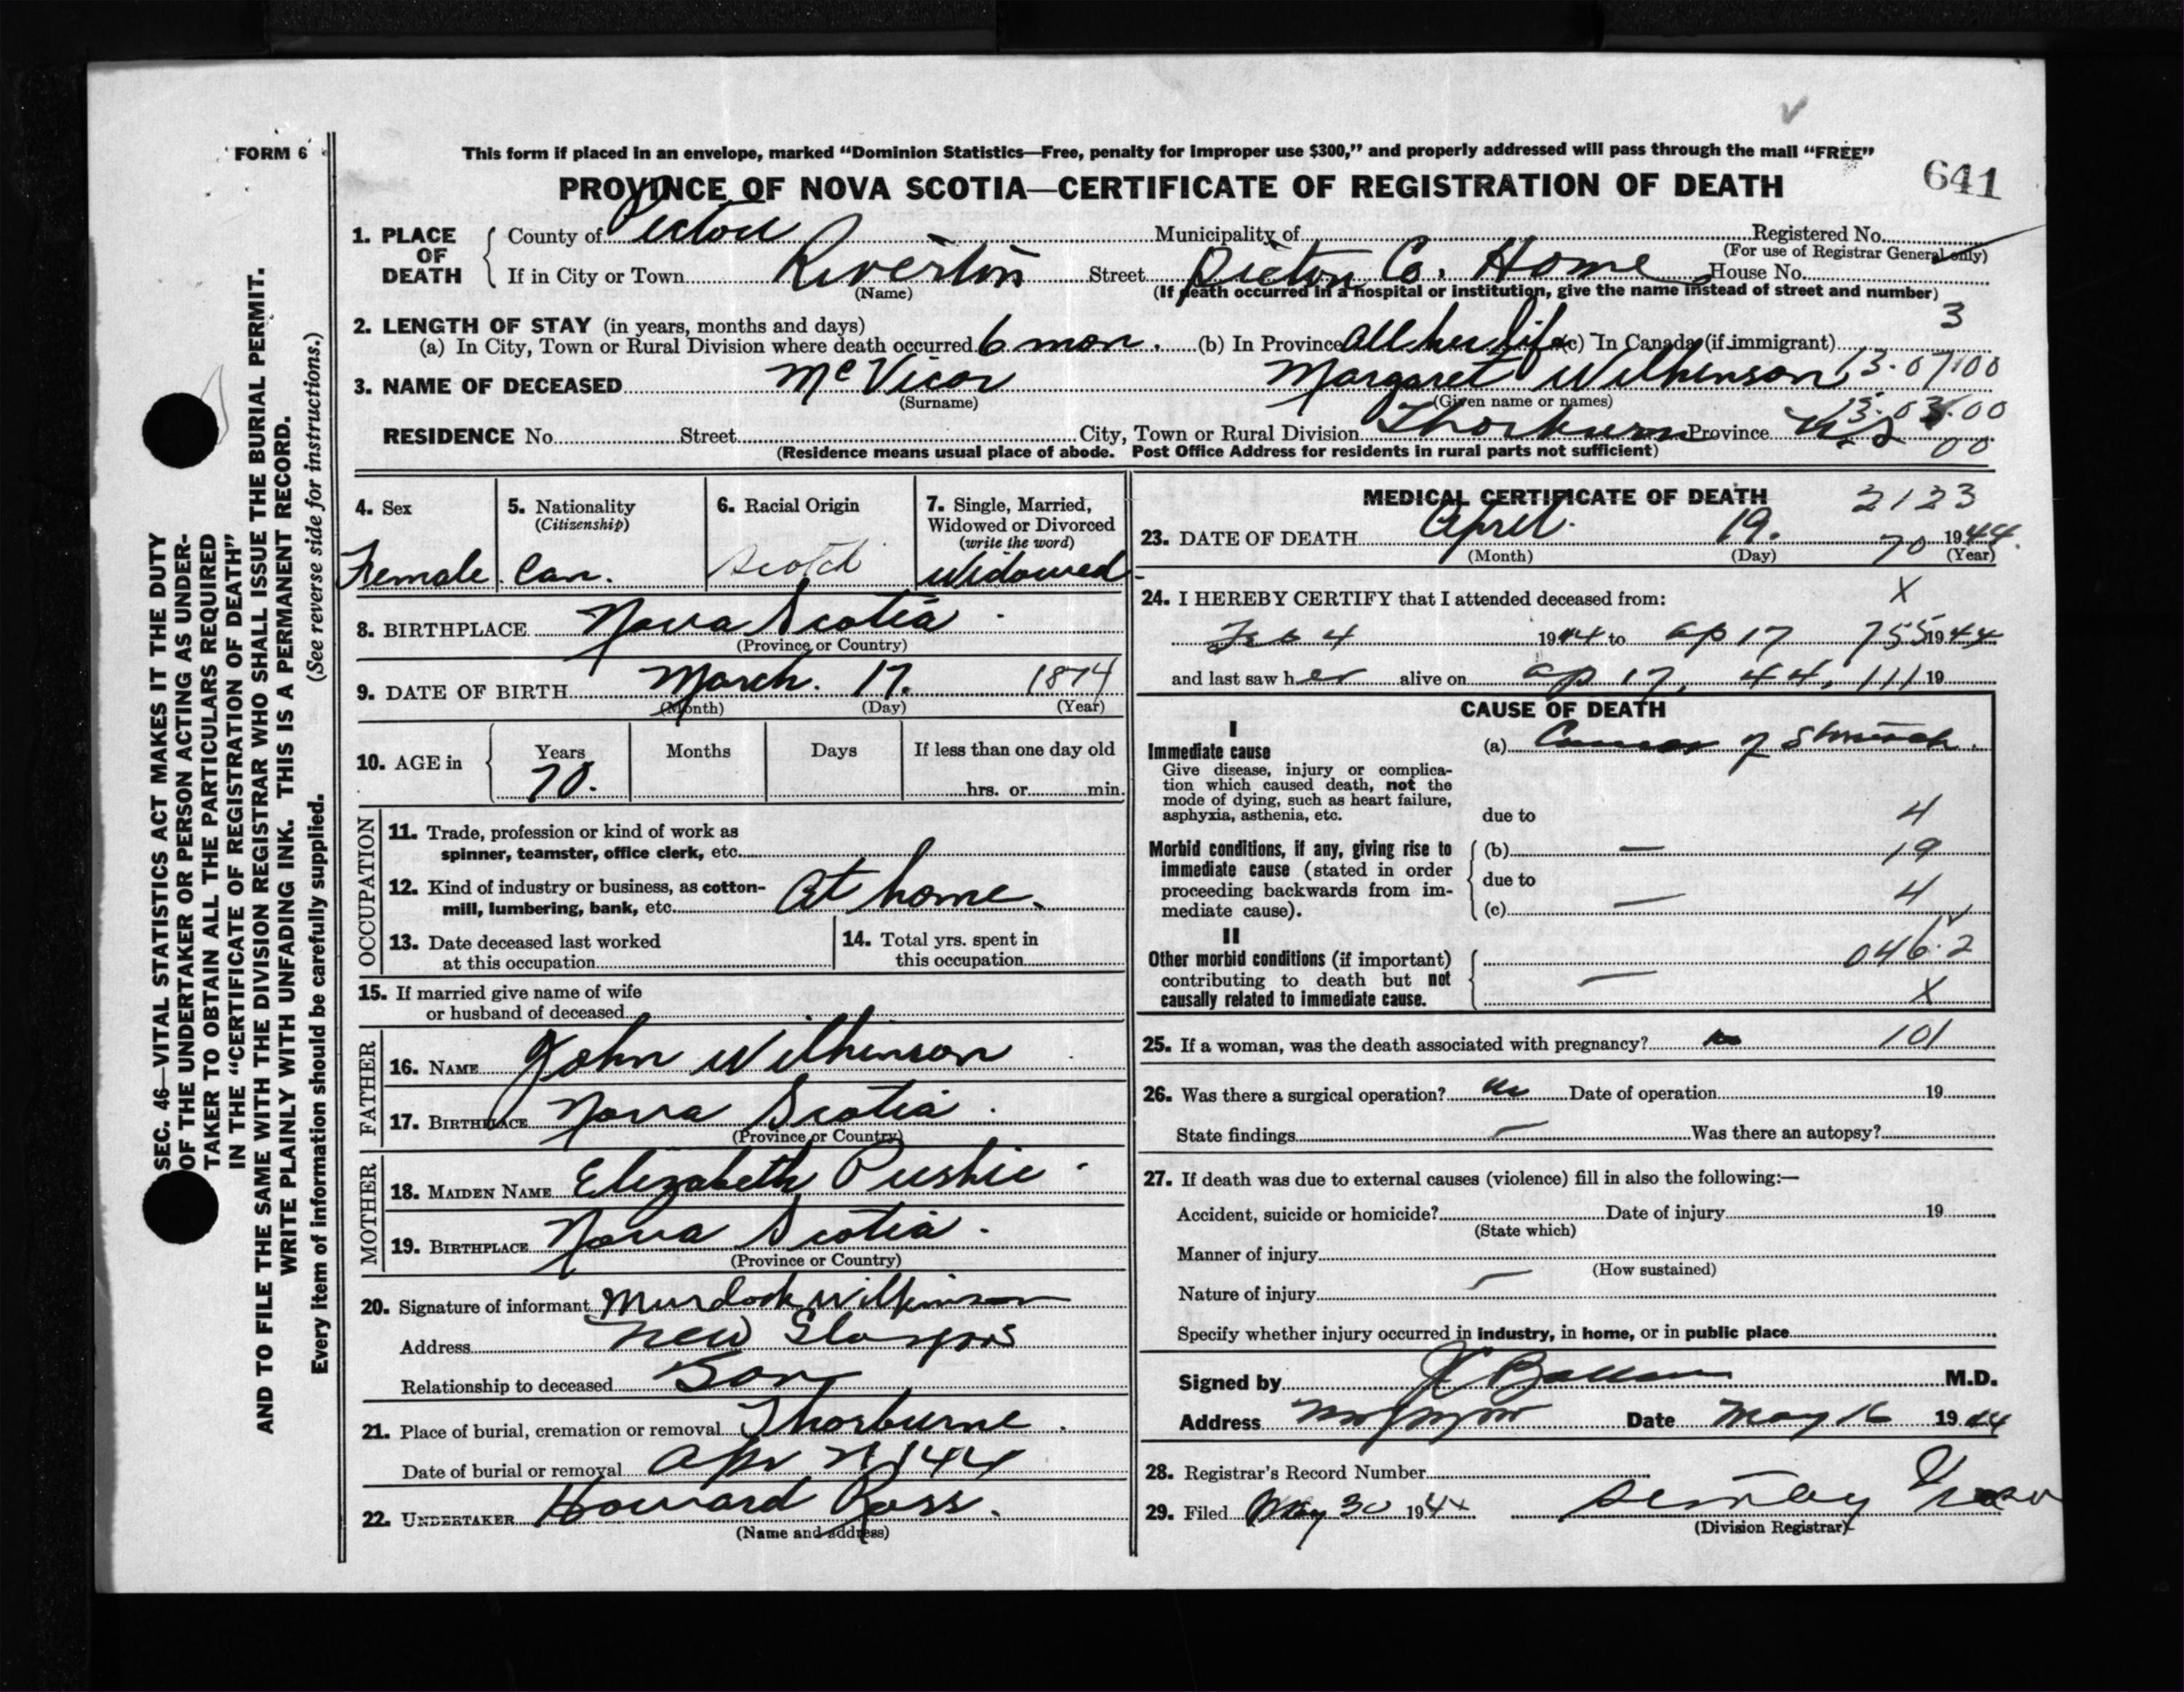 FORM 6
This form if placed in an envelope, marked “Dominion Statistics—Free, penalty for Improper use $300,” and properly addressed will pass through the mail “FREE”
PROVINCE OF NOVA SCOTIA—CERTIFICATE OF REGISTRATION OF DEATH
641
1. PLACE OF DEATH
County of Pictou Municipality of Registered No.
(For use of Registrar General only)
If in City or Town Riverton Street Pictou Co. Home House No.
(Name) (If death occurred in a hospital or institution, give the name instead of street and number)
2. LENGTH OF STAY (in years, months and days) 3
(a) In City, Town or Rural Division where death occurred 6 mon. (b) In Province All her life (c) In Canada (if immigrant)
3. NAME OF DECEASED McVicar Margaret Wilkinson 13.07.00
(Surname) (Given name or names)
RESIDENCE No. Street City, Town or Rural Division Thorburn Province N.S.
00
(Residence means usual place of abode. Post Office Address for residents in rural parts not sufficient)
4. Sex
Female
5. Nationality
(Citizenship)
Can.
6. Racial Origin
Scotch
7. Single, Married,
Widowed or Divorced
(write the word)
Widowed
8. BIRTHPLACE Nova Scotia
(Province or Country)
9. DATE OF BIRTH March. 17. 1874
(Month) (Day) (Year)
10. AGE in Years Months Days If less than one day old
70. hrs. or min.
OCCUPATION
11. Trade, profession or kind of work as
spinner, teamster, office clerk, etc.
12. Kind of industry or business, as cotton-
mill, lumbering, bank, etc. At home.
13. Date deceased last worked
at this occupation
14. Total yrs. spent in
this occupation
15. If married give name of wife
or husband of deceased
FATHER
16. NAME John Wilkinson
17. BIRTHPLACE Nova Scotia.
(Province or Country)
MOTHER
18. MAIDEN NAME Elizabeth Pushie
19. BIRTHPLACE Nova Scotia.
(Province or Country)
20. Signature of informant Murdock Wilkinson
Address New Glasgow
Relationship to deceased Son
21. Place of burial, cremation or removal Thorburne.
Date of burial or removal Apr 21/44
22. UNDERTAKER Howard Ross.
(Name and address)
MEDICAL CERTIFICATE OF DEATH 2123
23. DATE OF DEATH April. 19. 1944.
(Month) (Day) 70 (Year)
24. I HEREBY CERTIFY that I attended deceased from: X
Feb 4 1944 to Ap 17 755 1944
and last saw her alive on Ap 17, 44, 111 19
CAUSE OF DEATH
I
Immediate cause
Give disease, injury or complica-
tion which caused death, not the
mode of dying, such as heart failure,
asphyxia, asthenia, etc.
(a) Cancer of Stomach.
due to 4
Morbid conditions, if any, giving rise to
immediate cause (stated in order
proceeding backwards from im-
mediate cause).
(b) — 19
due to 4
(c) —
II
Other morbid conditions (if important)
contributing to death but not
causally related to immediate cause.
046.2
—
X
25. If a woman, was the death associated with pregnancy? no 101
26. Was there a surgical operation? no Date of operation 19
State findings — Was there an autopsy?
27. If death was due to external causes (violence) fill in also the following:—
Accident, suicide or homicide? Date of injury 19
(State which)
Manner of injury
(How sustained)
Nature of injury —
Specify whether injury occurred in industry, in home, or in public place
Signed by M.D.
Address Date May 16 1944
28. Registrar's Record Number
29. Filed May 30 1944
(Division Registrar)
SEC. 46—VITAL STATISTICS ACT MAKES IT THE DUTY
OF THE UNDERTAKER OR PERSON ACTING AS UNDER-
TAKER TO OBTAIN ALL THE PARTICULARS REQUIRED
IN THE “CERTIFICATE OF REGISTRATION OF DEATH”
AND TO FILE THE SAME WITH THE DIVISION REGISTRAR WHO SHALL ISSUE THE BURIAL PERMIT.
WRITE PLAINLY WITH UNFADING INK. THIS IS A PERMANENT RECORD.
Every item of information should be carefully supplied. (See reverse side for instructions.)